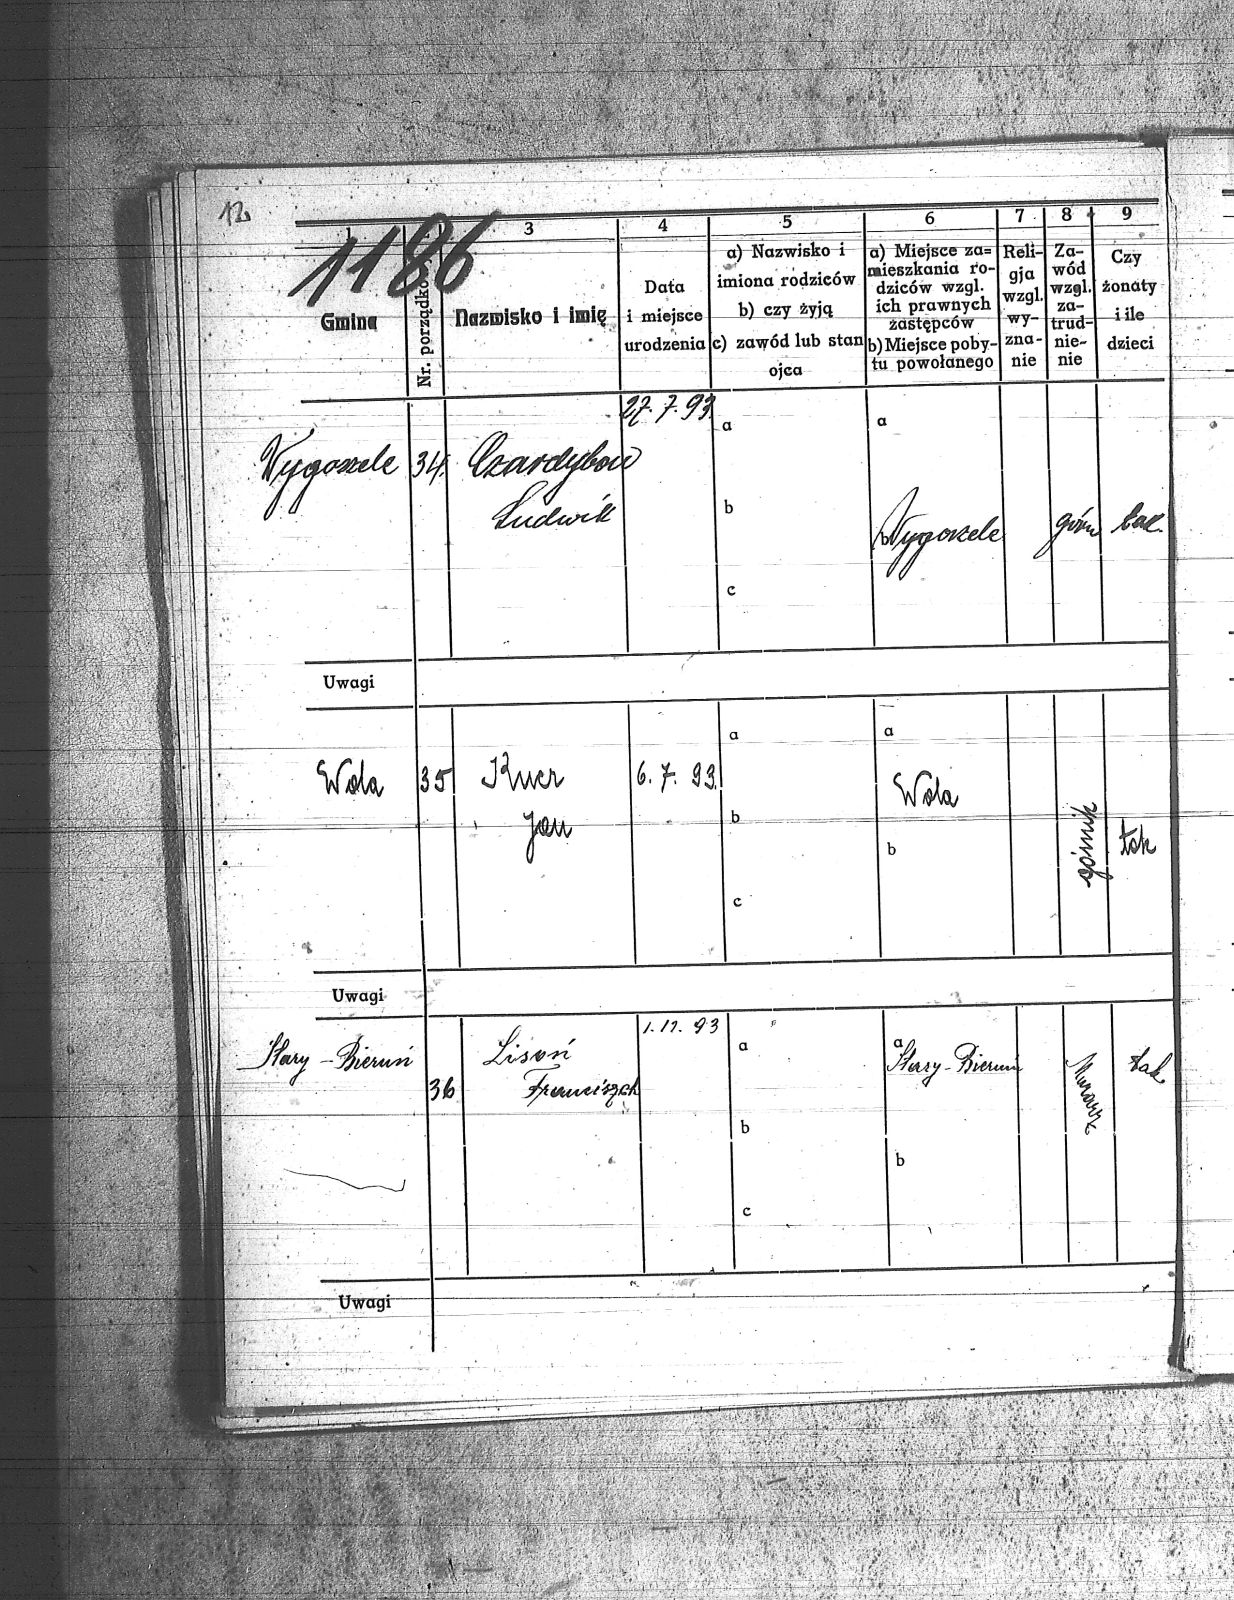 12
1186
1
3
4
5
6
7
8
9
Gmina
Nr. porządkow
Nazwisko i imię
Data
i miejsce
urodzenia
a) Nazwisko i
imiona rodziców
b) czy żyją
c) zawód lub stan
ojca
a) Miejsce za=
mieszkania ro-
dziców wzgl.
ich prawnych
zastępców
b) Miejsce poby-
tu powołanego
Reli-
gja
wzgl.
wy-
zna-
nie
Za-
wód
wzgl.
za-
trud-
nie-
nie
Czy
żonaty
i ile
dzieci
27. 7. 93.
a
a
Wygorzele 34. Czardybon
Ludwik
b
b
Wygorzele górn tak.
c
Uwagi
a
a
Wola 35 Kucz 6. 7. 93.
Wola
Jan
b
b
górnik
tak
c
Uwagi
1. 11. 93
a
a
Stary-Bieruń 36 Lisoń
Franciszek
Stary-Bieruń
Murarz
tak
b
b
c
Uwagi